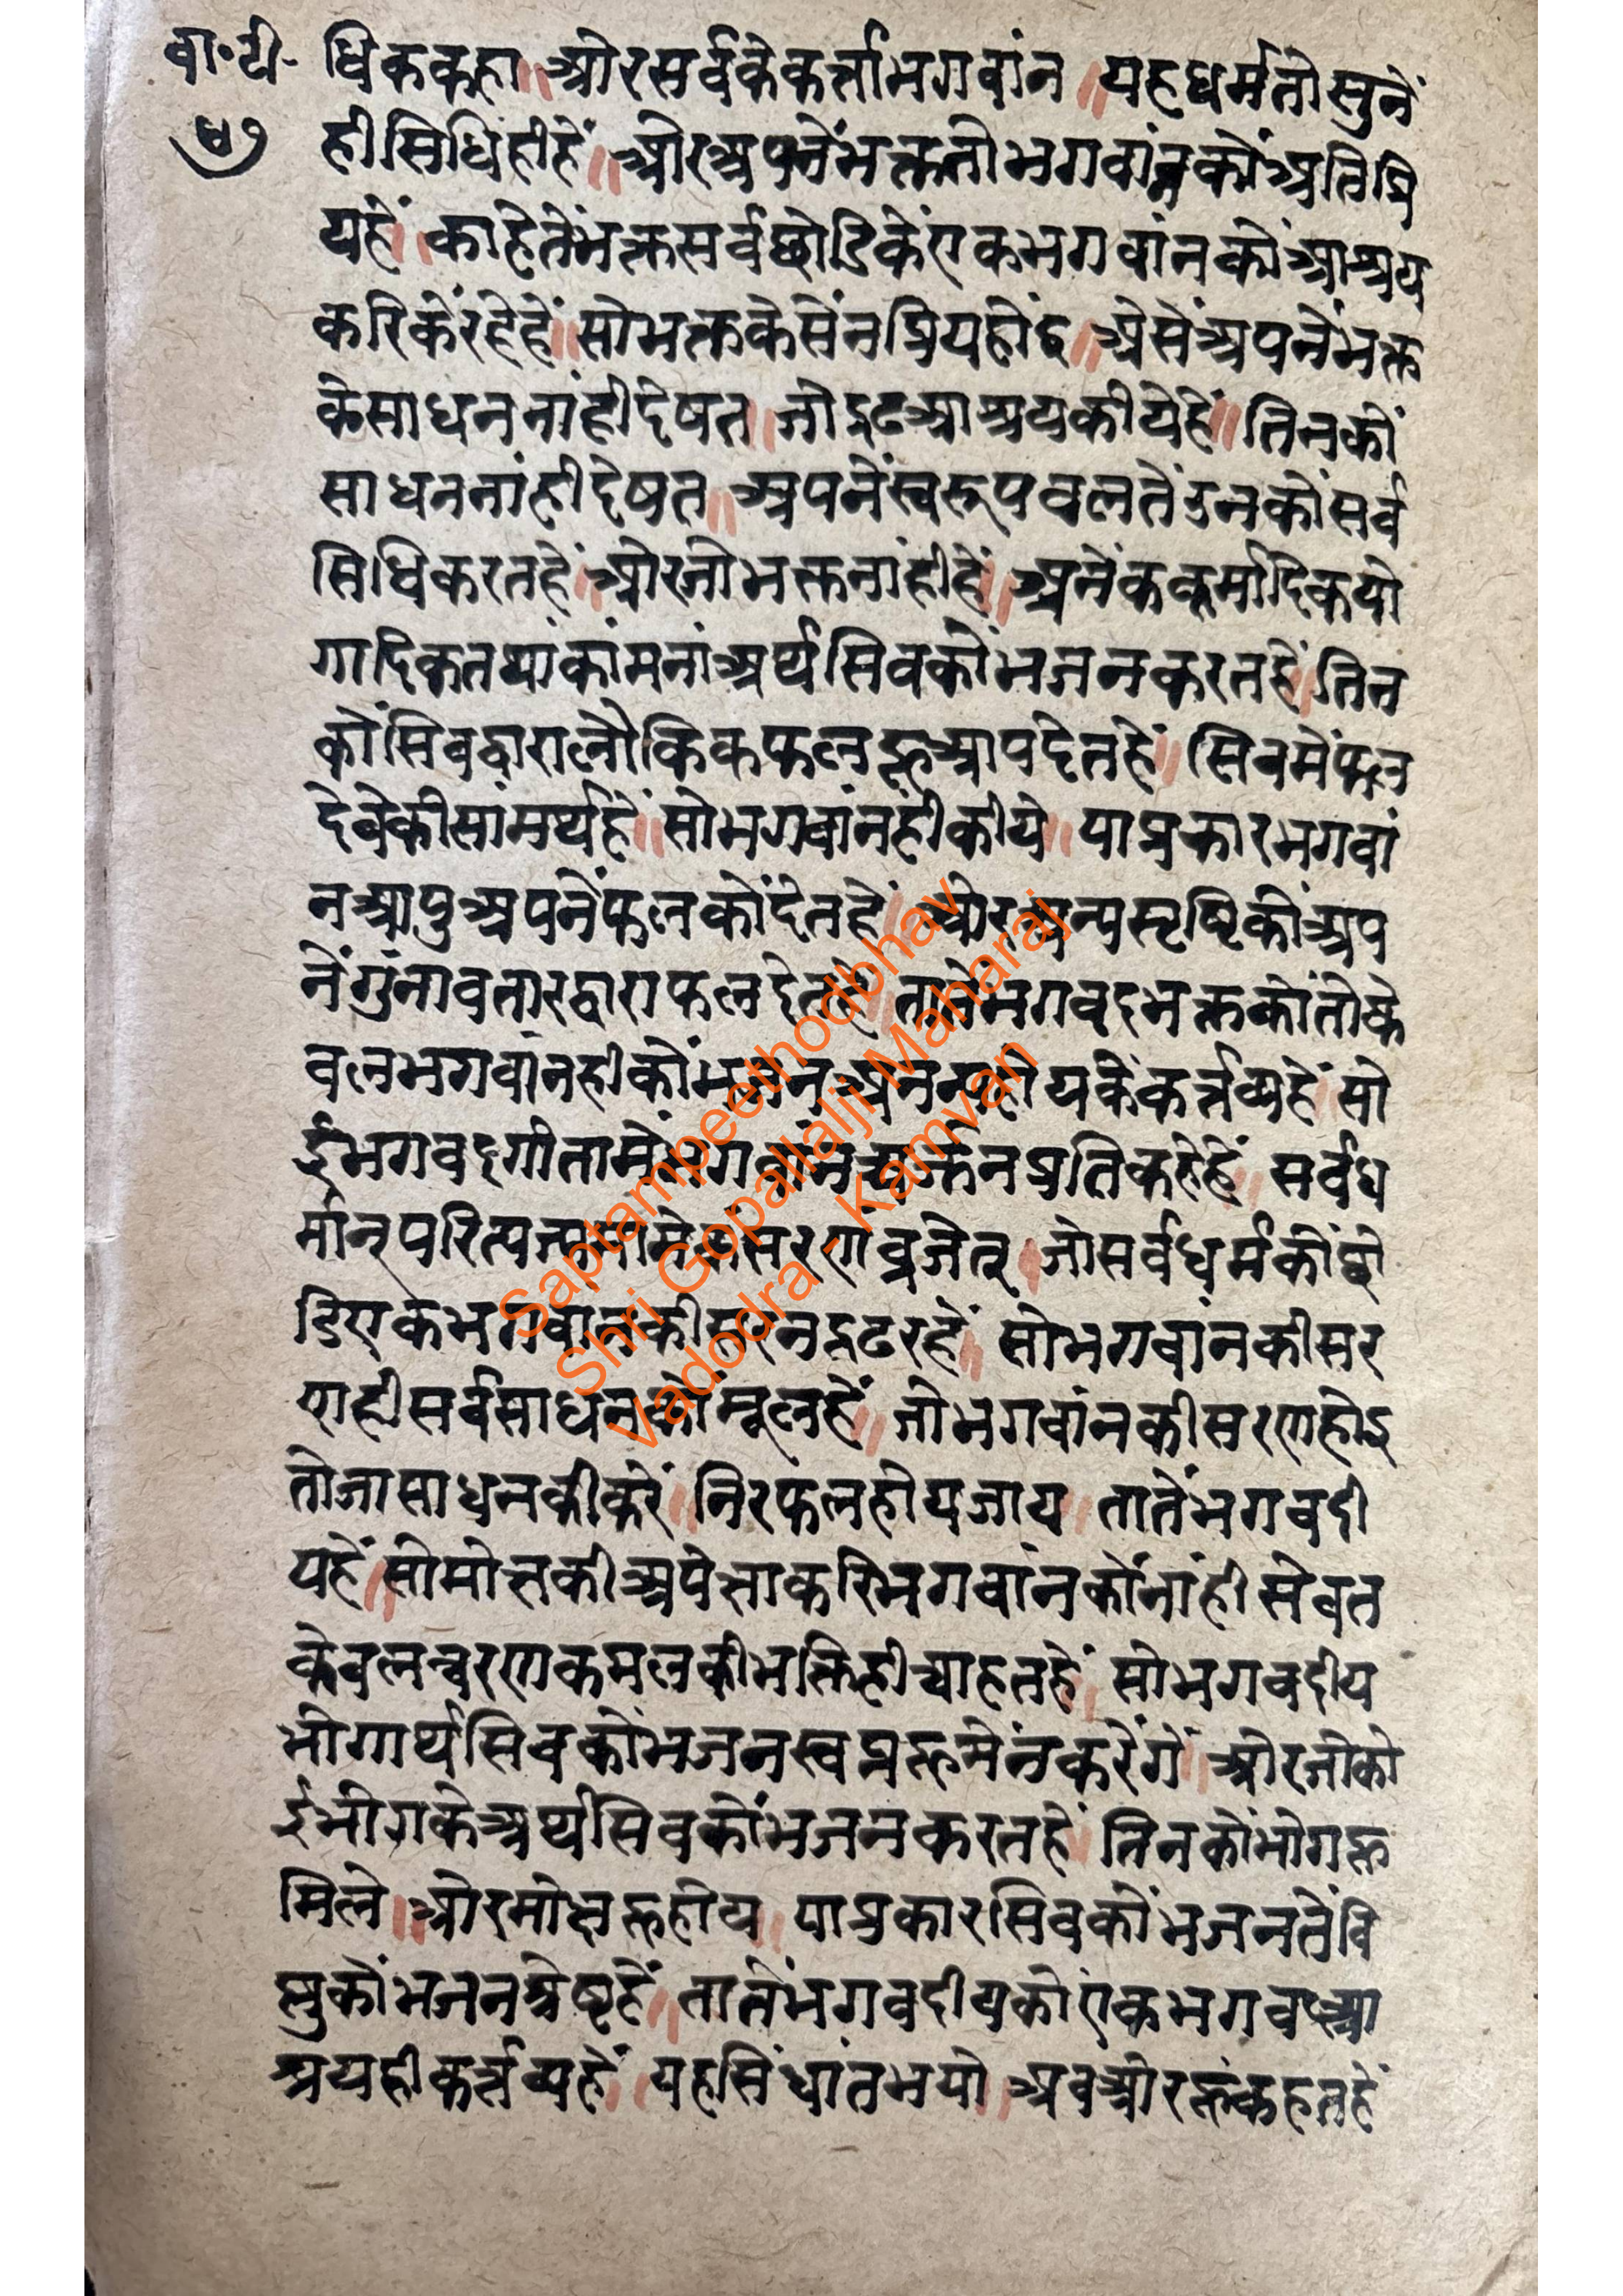 बा॰टी॰ धिककहा॥ ओरसर्वकेकर्त्ताभगवांन॥ यहधर्मतोसुनें
५७ हीसिधिहीहें॥ ओरअपनेंभक्ततोभगवांनकोंअतिप्रि
यहें॥ काहेतेंभक्तसर्वछोडिकेंएकभगवांनकोंआश्रय
करिकेंरहेहें॥ सोभक्तकेसेंनप्रियहोंइ॥ ओसेंअपनेंभक्त
केसाधननांहीदेषत॥ जोद्रढआश्रयकीयेहें॥ तिनकों
साधननांहीदेषत॥ अपनेंस्वरूपबलतेंउनकोंसर्व
सिधिकरतहें॥ ओरजोभक्तनांहीहें॥ अनेंककर्मादिकयो
गादिकतथाकांमनांअर्थसिवकोंभजनकरतहें॥ तिन
कोंसिवद्वारालौकिकफलहूआपदेतहें॥ सिवमेंफल
देबेकीसांमर्थहें॥ सोभगवांनहीकीये॥ याप्रकारभगवां
नआपुअपनेंफलकोंदेतहें॥ ओरअन्यसृष्टिकोंअप
नेंगुंनावतारद्वाराफलदेतहें॥ तातेंभगवद्भक्तकोंतोके
वलभगवांनहीकोंभजनअनन्यहोयकेंकर्त्तव्यहें॥ सो
ईभगवद्गीतामेंभगवांनअर्जुनप्रतिकहेहें॥ सर्वध
र्मान्परित्यज्यमांमेकंसरणंव्रजेत्॥ जोसर्वधर्मकोंछो
डिएकभगवांनकीसरनद्रढरहें॥ सोभगवांनकीसर
णहीसर्वसाधनकोंमूलहें॥ जोभगवांनकीसरणहोइ
तोजासाधनकीकरें॥ निरफलहोयजाय॥ तातेंभगवदी
यहें॥ सोमोक्षकीअपेक्षाकरिभगवांनकोंनांहीसेवत
केवलचरणकमलकीभक्तिहीचाहतहें॥ सोभगवदीय
भोगार्थसिवकोंभजनस्वप्नहूमेंनकरेंगे॥ ओरजोको
ईभोगकेअर्थसिवकोंभजनकरतहें॥ तिनकोंभोगहू
मिले॥ ओरमोक्षहूहोय॥ याप्रकारसिवकोंभजनतेंवि
ष्णुकोंभजनश्रेष्टहें॥ तातेंभगवदीयकोंएंकभगवदआ
श्रयहीकर्त्तव्यहें॥ यहसिंधांतभयो॥ अबओरहूंकहतहें
Saptampeethodbhav
Shri Gopallalji Maharaj
Vadodra - Kamvan